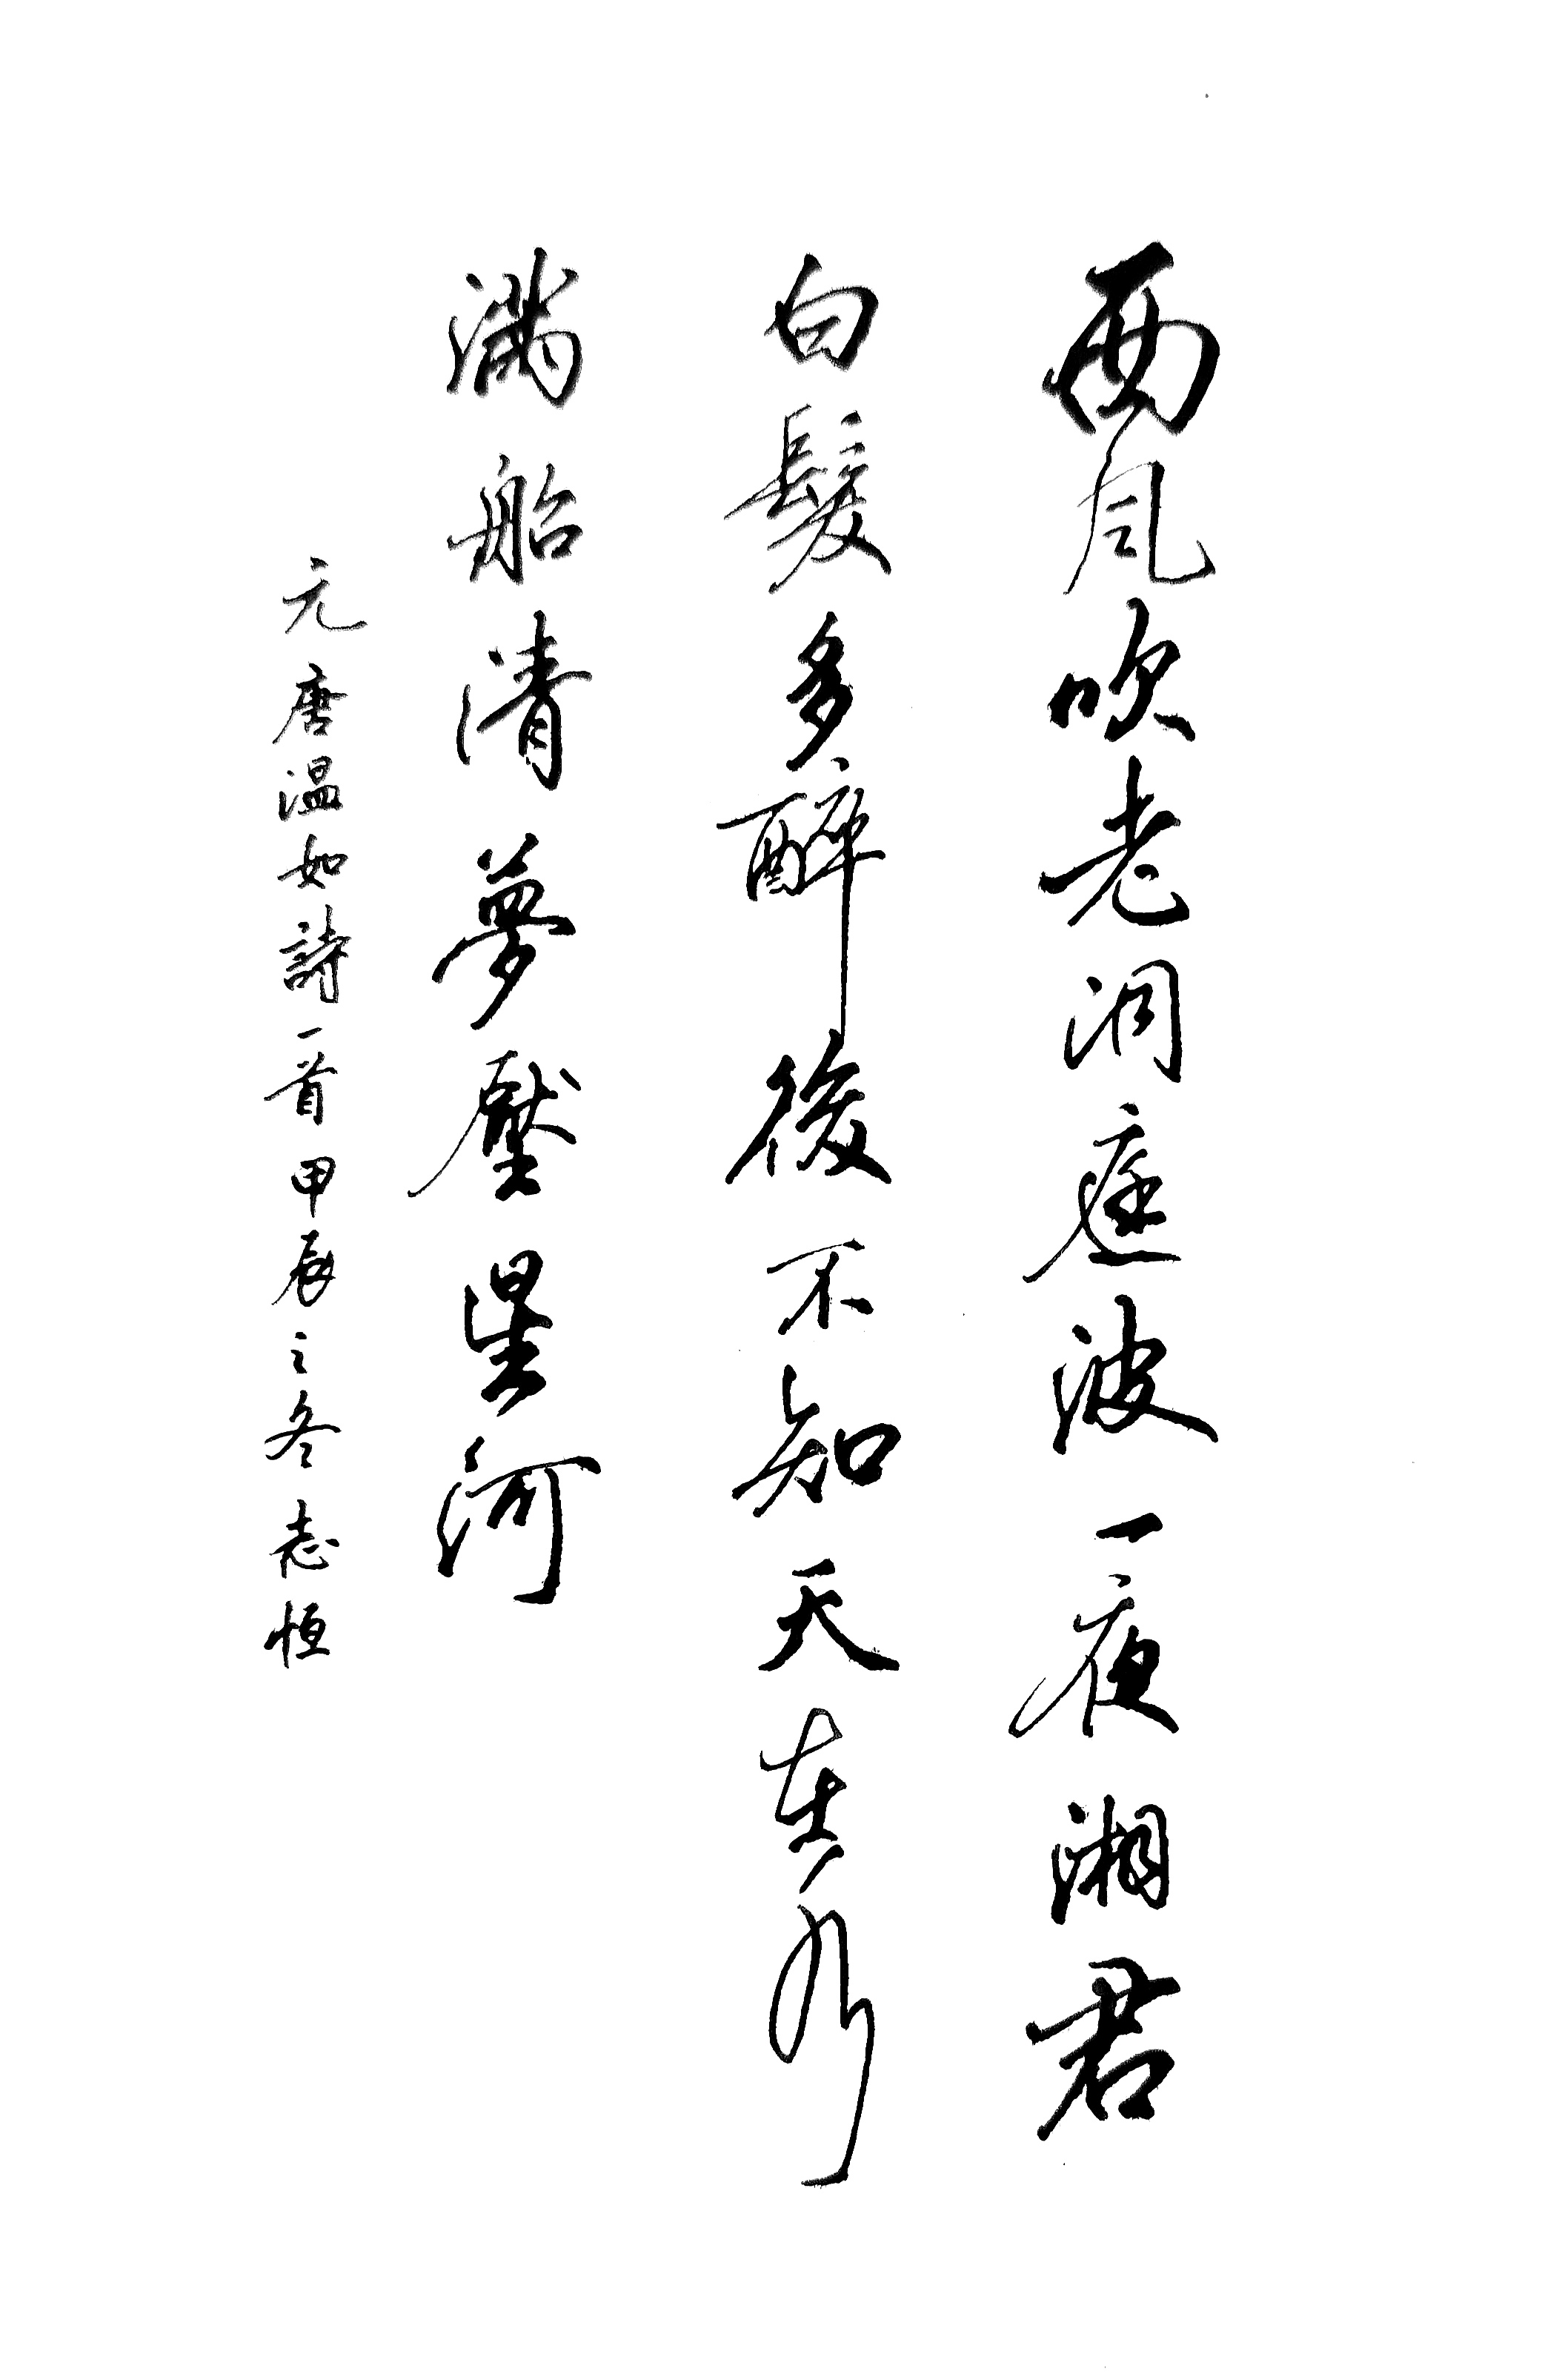 西風吹老洞庭波一夜湘君
白髮多醉後不知天在水
滿船清夢壓星河
元唐温如詩一首甲辰之冬志恒